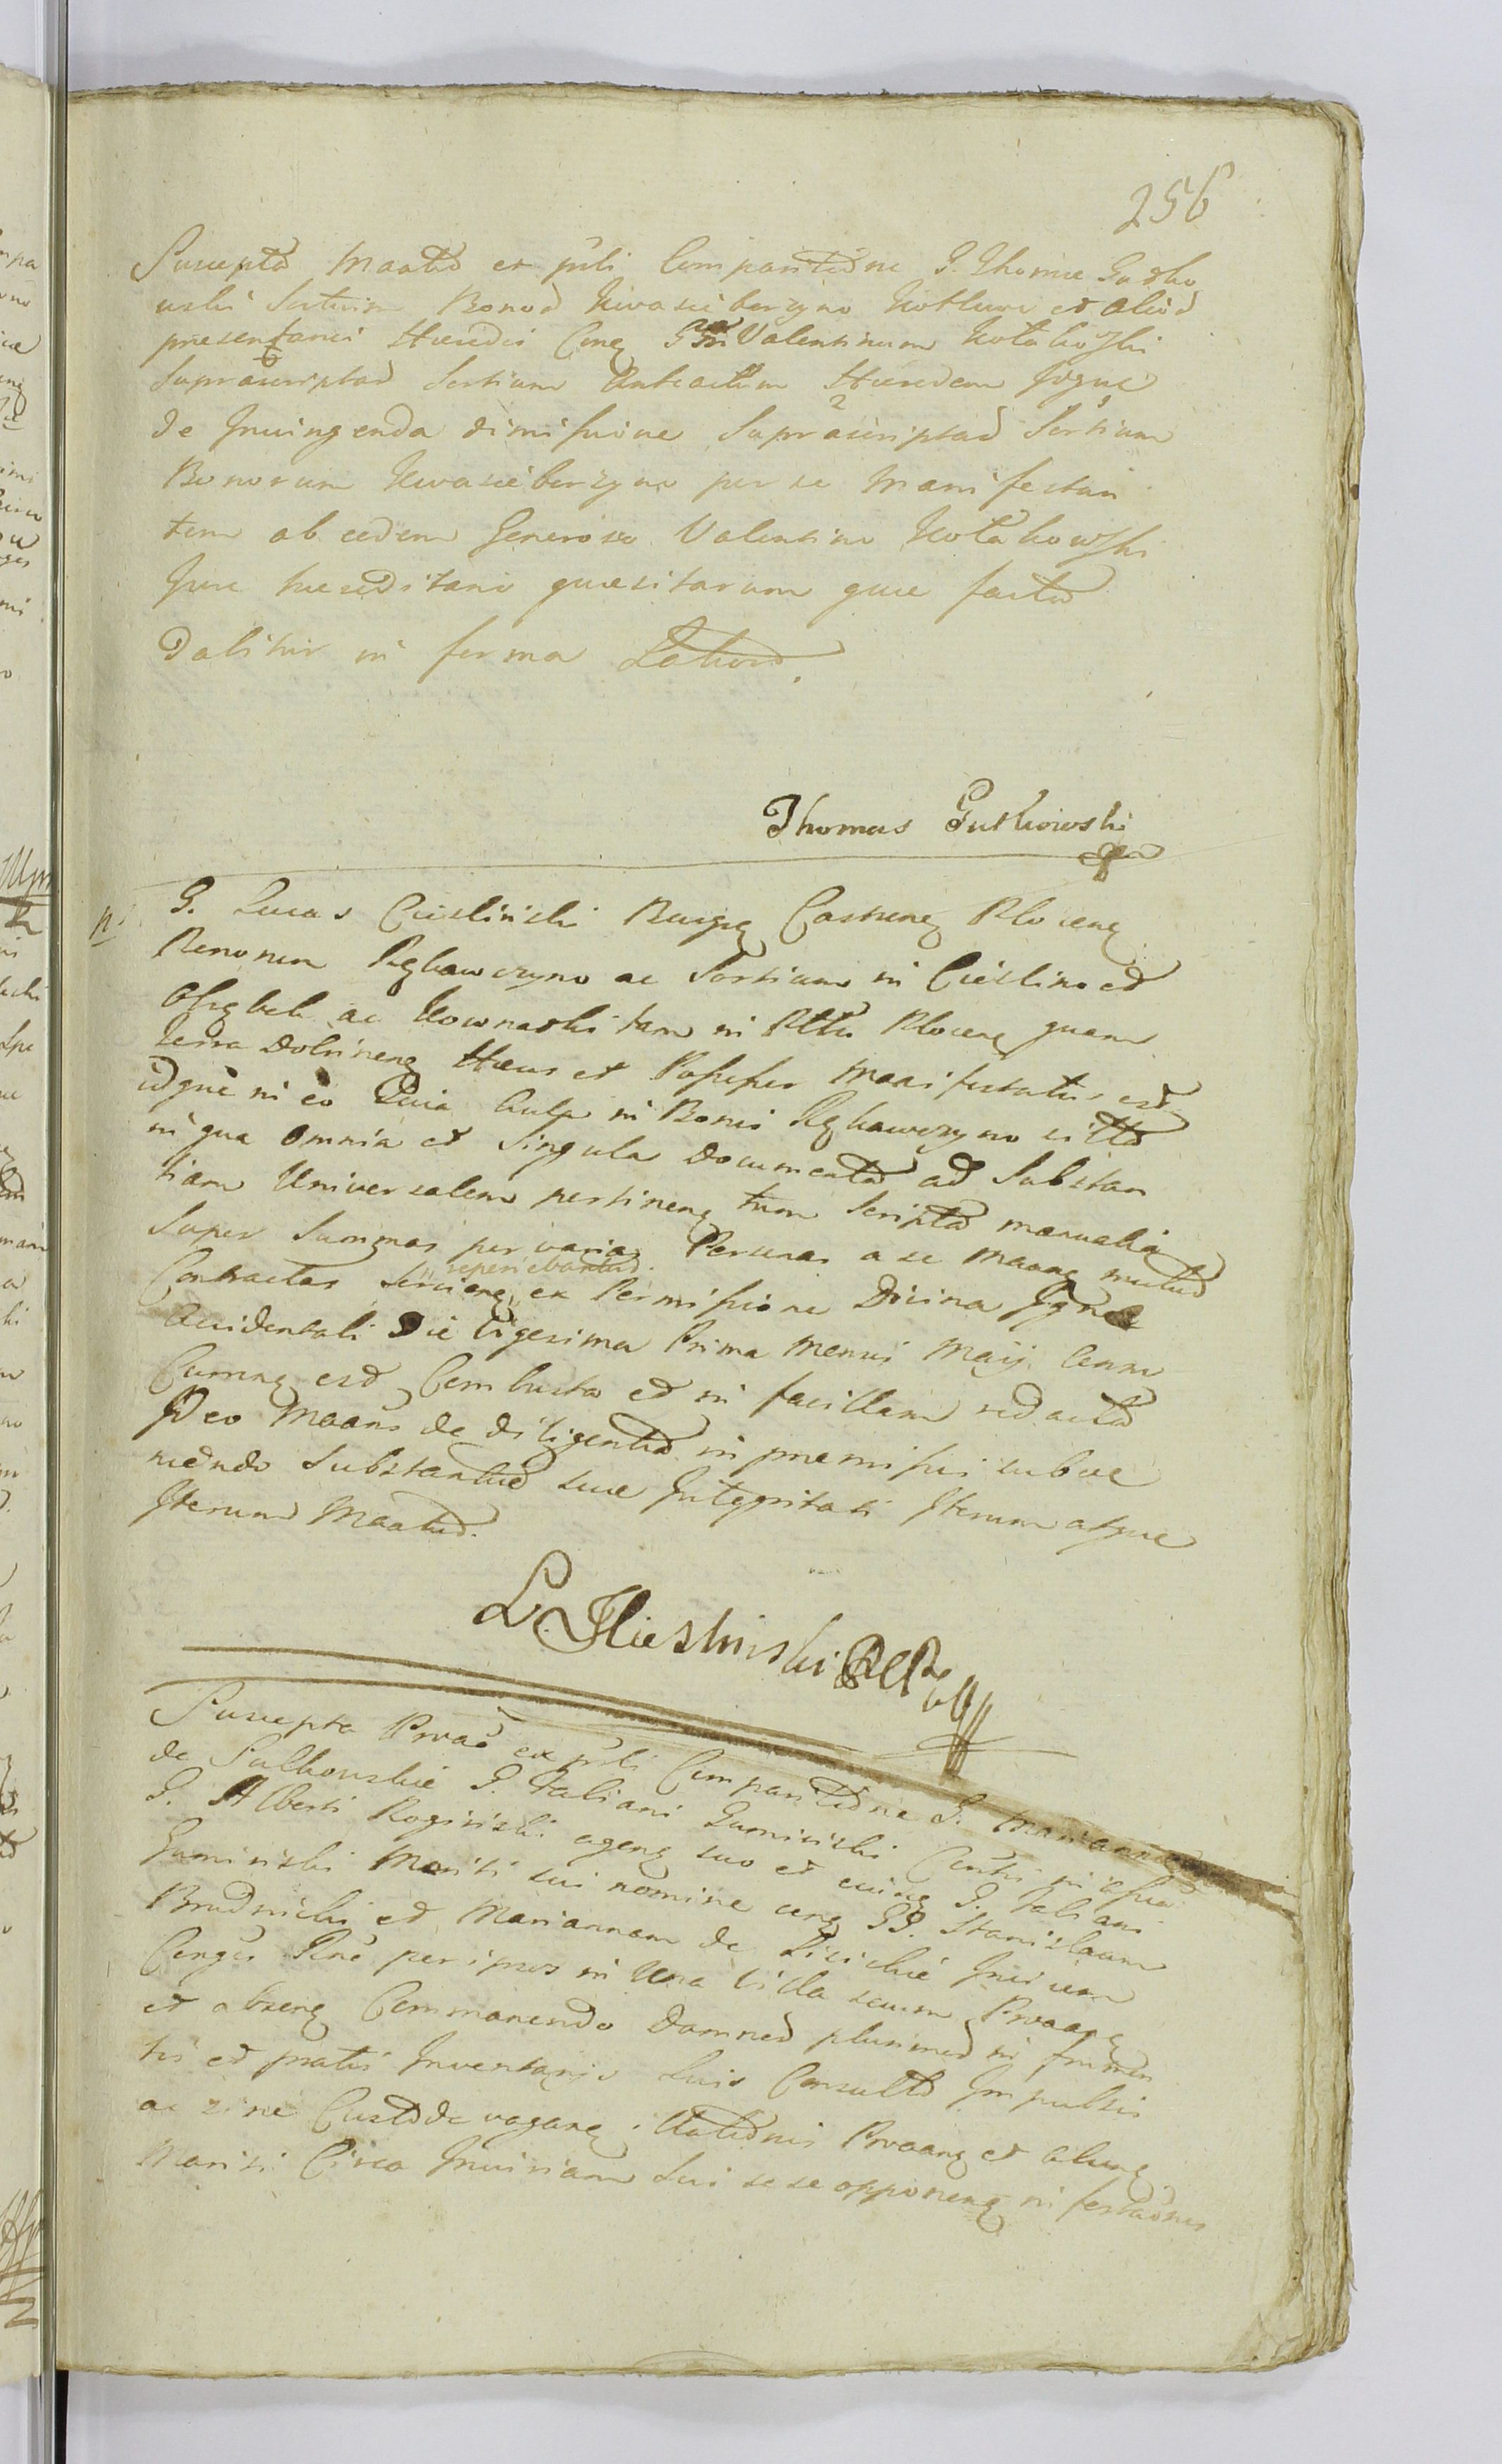 256
Suscepta Maatio et psti Comparitione G. Thomae Gutko
wski Sortium Bonor Kwasieborzyno Kotkowo et alior
praesentanei Haeredis Cong G Valentinum Kołakowski
Suprascriptar Sortium Anteactum Haeredem Idque
de Iniungenda dimissione Suprascriptar Sortium
Bonorum Kwasieborzyno per se Manifestan
tem ab eodem Generoso Valentino Kołakowski
Jure haereditario quaesitarum quae facta
Dabitur in forma Latiori.
Thomas Gutkowski
G. Lucas Cieslinski Burgg Castreng Ploceng
Bonorum Pękawczyno ac Sortium in Cieslino et
ac Kownatki tam in Pttu Ploceng quam
Terra Dobrineng Haeres et Possessor Manifestatus est
idque in eo Quia Aula in Bonis Pękawczyno sitta
in qua Omnia et Singula Documenta ad Substan
tiam Universalem pertineng tum Scripta manualia
Super Summas per varias Personas a se Maang mutuo
Contractas Servieng reperiebantur ex Permissione Divina Igne
Accidentali Die Vigesima Prima Mensis Maij Anni
Curreng est Combusta et in favillam redacta
Ideo Maans de diligentia in praemissis subve
niendo Substantiae suae Integritati Iterum atque
Iterum Maatur.
L. Cieslinski
Suscepta Prvao ex psti Comparitione G. Marianna
de Sulkowskie G. Fabiani Guminski Consti in assia
G. Alberti Roginski ageng suo et eiusg G. Fabiani
Guminski Mariti sui nomine cong GG. Stanislaum
Brudnicki et Mariannam de Lisickie Invicem
Conges per ipsos in Una Villa secum Prvaang
et abseng Commanendo Damnor plurimor in frumen
tis et pratis Inventarijs Suis Consulto Impulsis
ac sine Custode vagang Prvaang et
Mariti Circa Iniuriam Sui sese opponeng infestaonis